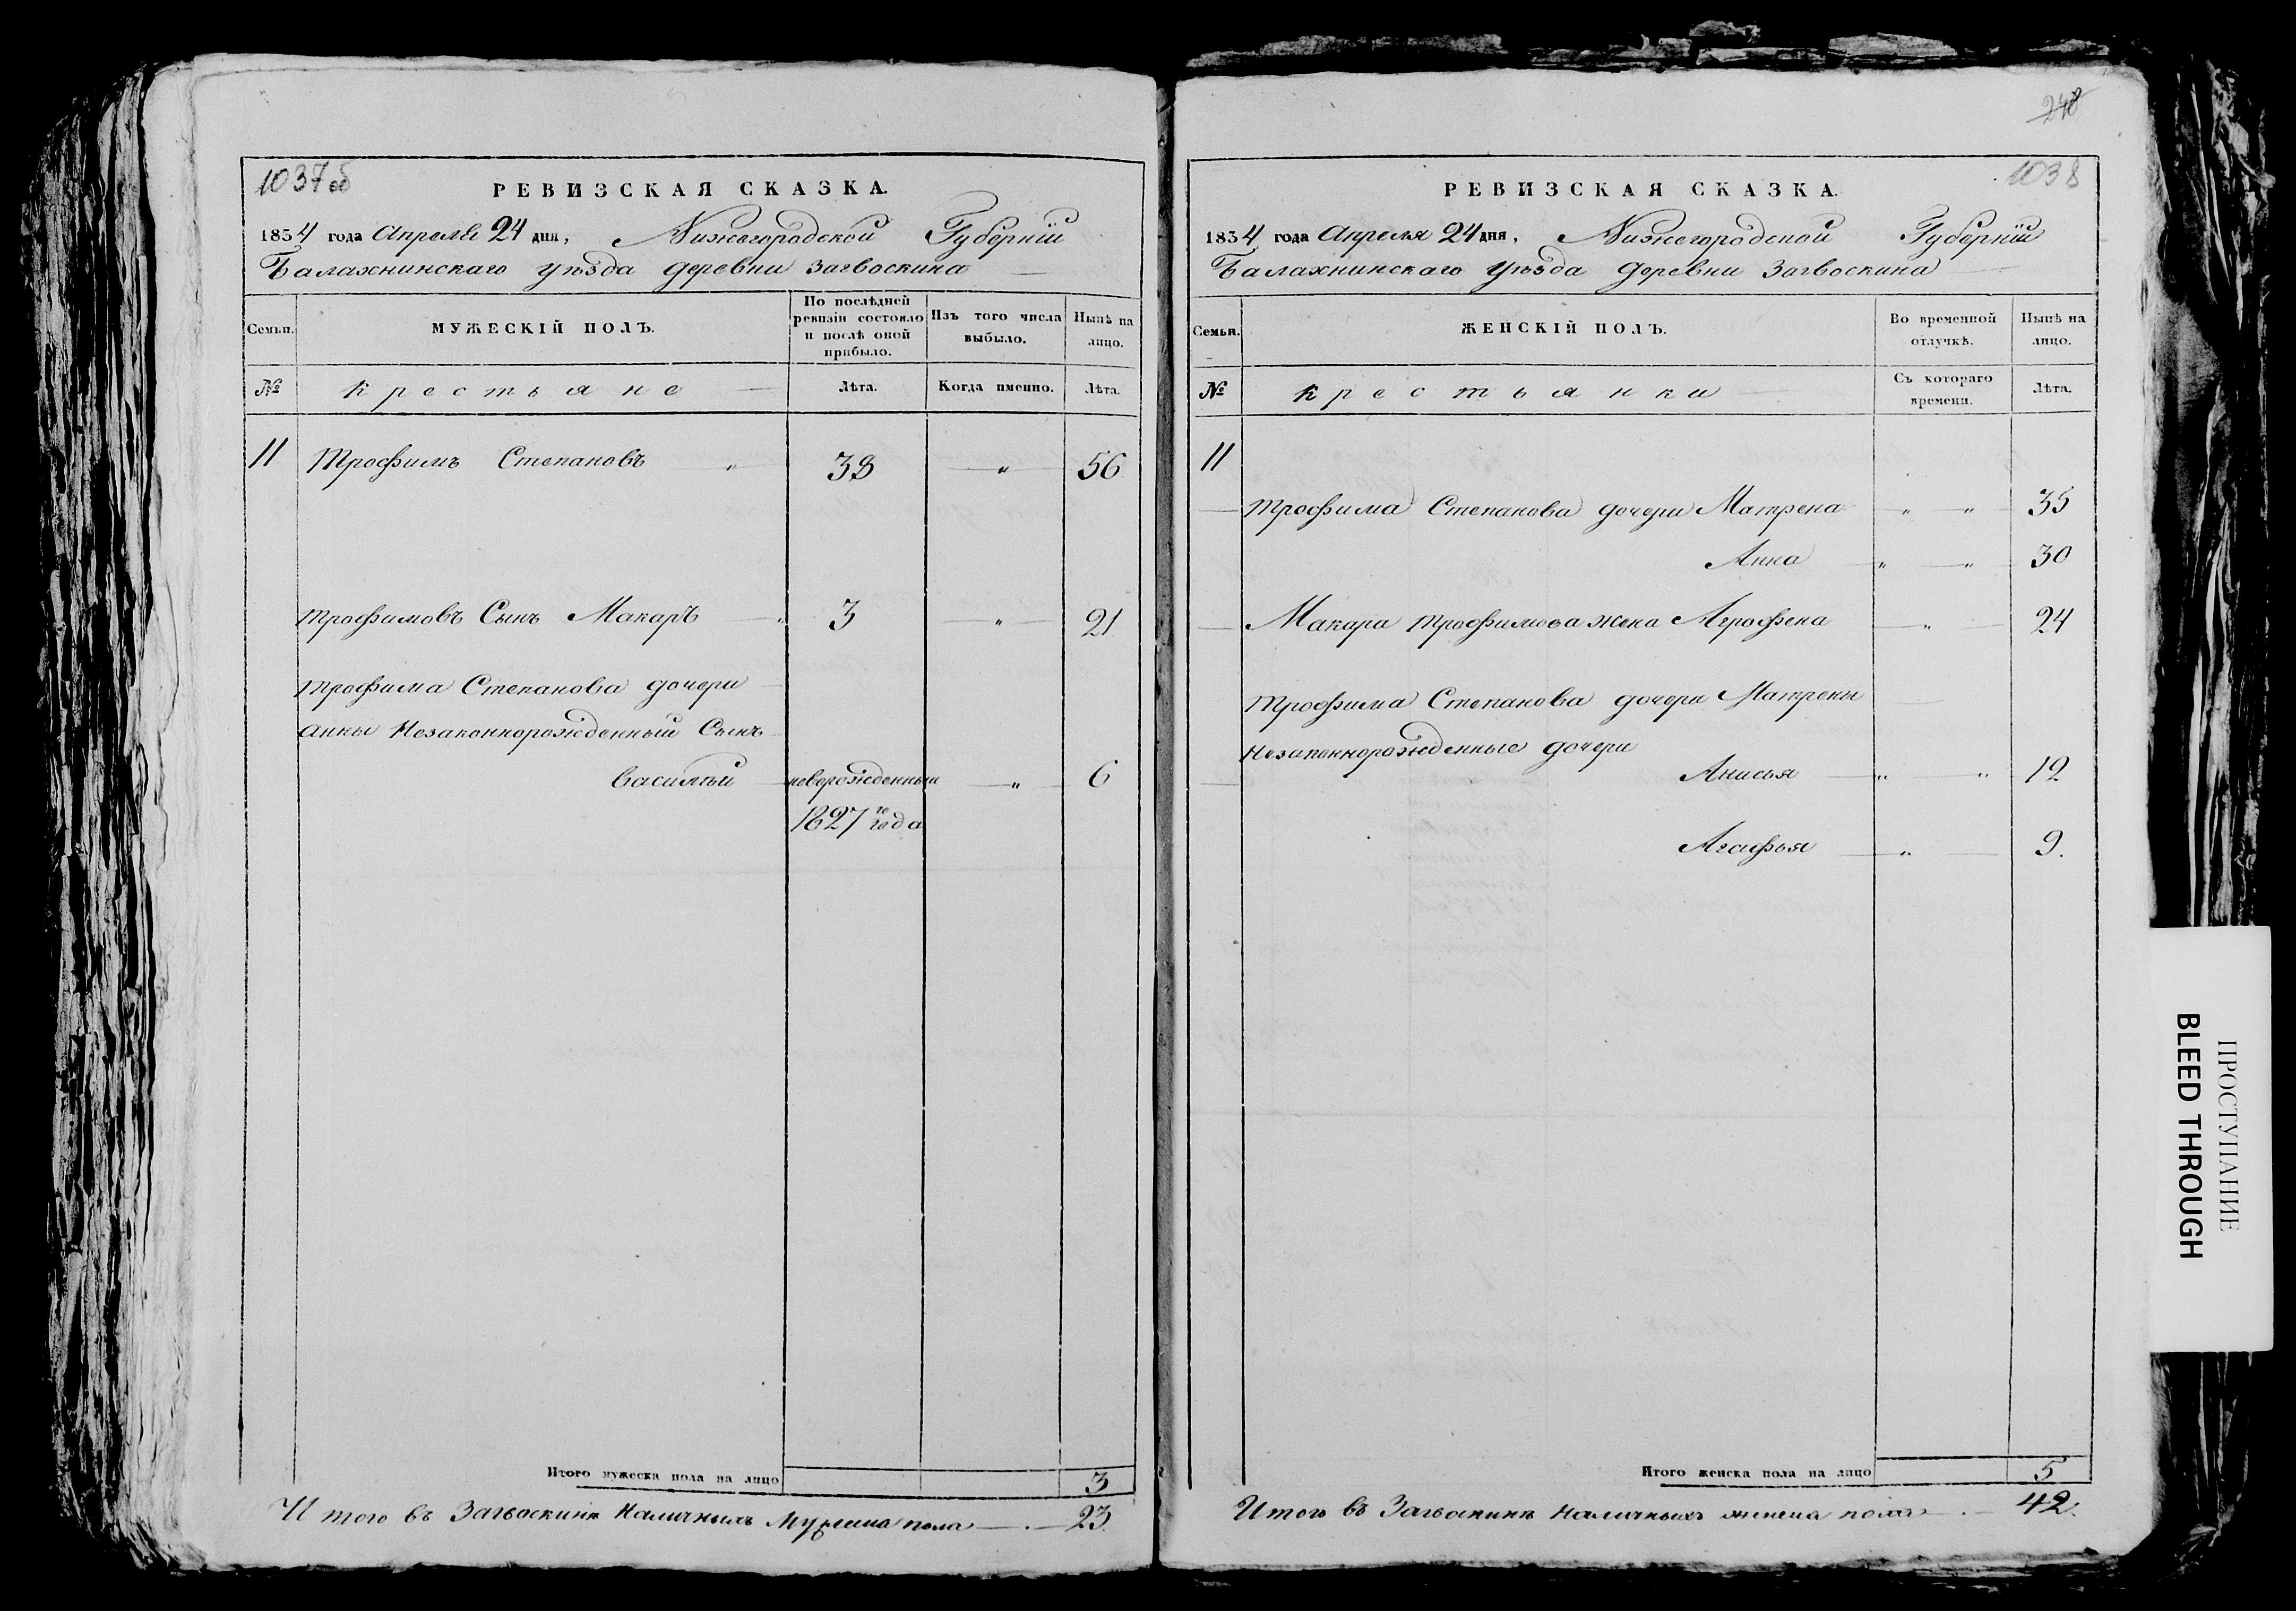 1037 об
РЕВИЗСКАЯ СКАЗКА.
1834 года Апреля 24 дня, Нижегородской Губерніи
Балахнинскаго уѣзда деревни Загвоскина
Семьи.
МУЖЕСКІЙ ПОЛЪ.
По послѣдней ревизіи состояло и послѣ оной прибыло.
Изъ того числа выбыло.
Нынѣ на лицо.
№
крестьяне
Лѣта.
Когда именно.
Лѣта.
11 Трофимъ Степановъ " 38 " 56
Трофимовъ Сынъ Макаръ " 3 " 21
Трофима Степанова дочери
Анны Незаконнорожденный Сынъ
Василий новорожденный " 6
1827го года
Итого мужеска пола на лицо 3
Итого въ Загвоскине Наличныхъ Мужеска пола 23.
248
1038
РЕВИЗСКАЯ СКАЗКА.
1834 года Апреля 24 дня, Нижегородской Губерніи
Балахнинскаго уѣзда деревни Загвоскина
Семьи.
ЖЕНСКІЙ ПОЛЪ.
Во временной отлучкѣ.
Нынѣ на лицо.
№
крестьянки
Съ котораго времени.
Лѣта.
11
Трофима Степанова дочери Матрена " " 35
Анна " " 30
Макара Трофимова жена Агрофена " 24
Трофима Степанова дочери Матрены
Незаконнорожденные дочери
Анисья " " 12
Агафья " 9.
Итого женска пола на лицо 5
Итого въ Загвоскине Наличныхъ женска пола 42.
ПРОСТУПАНИЕ
BLEED THROUGH